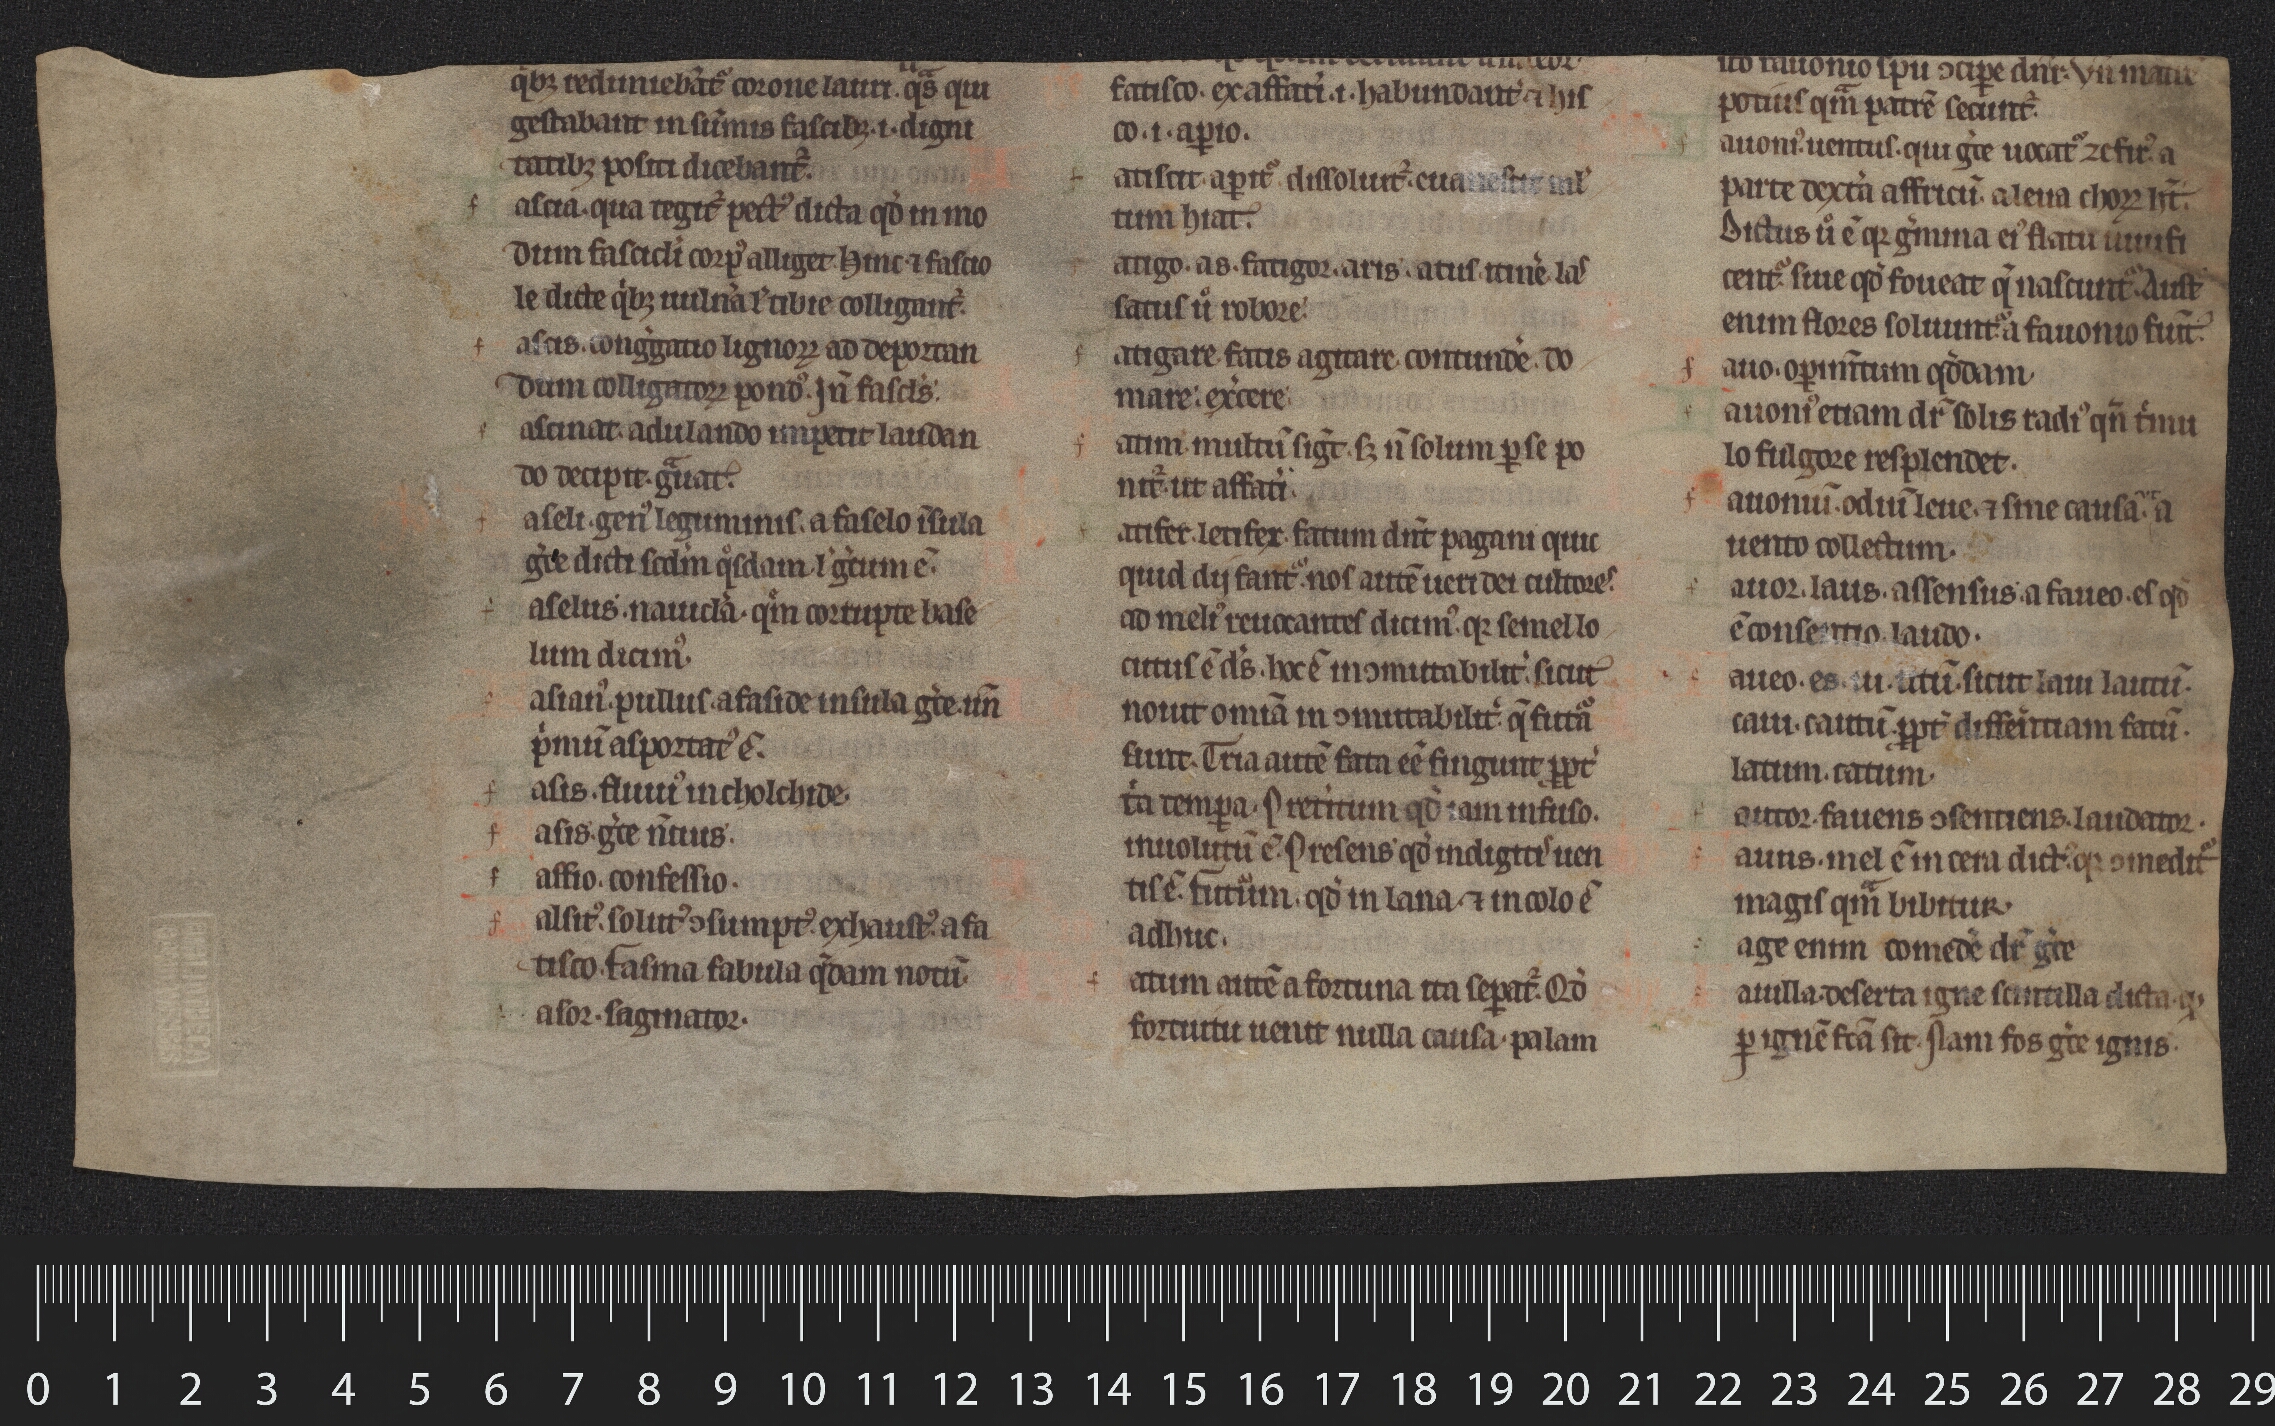 qͥbꝫ redimiebāt᷑ corone lauri. qͣs̄ qui
gestabant in sūmis fascibꝫ .i. digni
tatibꝫ positi dicebant᷑.
f ascia. qua tegit᷑ pectꝰ dicta qď in mo
dum fascicli corpꝰ alliget. Hinc ⁊ fascio
le dicte qͥbꝫ uulnͣa ł tibie colligant᷑.
f ascis. congͣgatio lignoꝝ ad deportan
dum colligatoꝝ pondꝰ. Jn̄ fascıs̄.
f ascinat. adulando impetit laudan
do decipit. gͣuat᷑.
f aseli. genꝰ leguminis. a faselo īsula
gͤce dicti scd̄m qͦsdam. ł gͤcum ē.
f aselus. nauiclͣa. qͣm corrupte base
lum dicimꝰ.
f asianꝰ. pullus. a faside insula gͤce. uñ
pͥmū asportatꝰ ē.
f asis. fluuiꝰ in cholchide.
f asis. gͤce ñtius.
f assio. confessio.
f alsitꝰ. solutꝰ ↄsumptꝰ. exhaustꝰ. a fa
tisco. fasma fabula qͣdam notū.
asor. saginator.
fatisco. ex affatī .i. habundant᷑ ⁊ his
co .i. aꝑio.
f atiscit. aꝑit᷑. dissoluit᷑.
tum hiat᷑.
f atigo. as. fatigor. aris. atus. itinͤe. las
satus ů robore.
f atigare. fatis agitare. contundͤe. do
mare. exͤcere.
f atim. multū sigͭ. sꝫ ñ solum ꝑ se po
nit᷑. ut affatī.
atifer. letifer. fatum dn̄t pagani quic
quid dij fant᷑. nos autē ueri dei cultores
ad meliꝰ reuocantes dicimꝰ. qꝛ semel lo
cutus ē ds̄. hoc ē inↄmutabiliť. sicut
nouit omīa inↄmutabiliť. q̄ futͣa
sunt. Tria autē fata eē fingunt ꝓpť
tͥa temꝑa. Pretitum qď iam in fuso.
inuolutū ē. Presens qď in digitꝭ nen
tis ē. Futͧum. qď in lana. ⁊ in colo ē
adhuc.
f atum autē a fortuna ita seꝑat᷑. Qď
fortuitu uenit nulla causa palam
ito fauonio spū ↄciꝑe dn̄r. Vñ
potius qͣm patrē secunt᷑.
f auoniꝰ. uentus. qui gͤce uocat᷑ zefirꝰ. a
parte dextͣa affricū. a leua choꝝ hꝫ.
Dictus ů ē qꝛ gͤmina eiꝰ flatu uiuifi
cent᷑. siue qď foueat q̄ nascunt᷑. Aust᷑
enim flores soluunt᷑. a fauonio fiūt.
f auo. oꝑimtum qͦddam
f auoniꝰ etiam dr̄ solis radiꝰ qn̄ tͤmu
lo fulgore resplendet.
f auoniū. odiū leue. ⁊ sine causa. ut a
uento collectum.
f auor. laus. assensus. a faueo. es. qď
ē consentio. laudo.
f aueo. es. ui. utū. sicut laui lautū.
caui. cautū. ꝓpť differ̄tiam fatū.
latum. catum.
f autor. fauens. ↄsentiens. laudator.
f auus. mel ē in cera dictꝰ. qꝛ ↄmedit᷑
magis qͣm bibitur.
age enim comedͤe dr̄ gͤce
auilla. deserta igne scintilla dicta. qꝛ
ꝑ ignē fc̄a sit. Nam fos gͤce ignis.
0 1 2 3 4 5 6 7 8 9 10 11 12 13 14 15 16 17 18 19 20 21 22 23 24 25 26 27 28 29